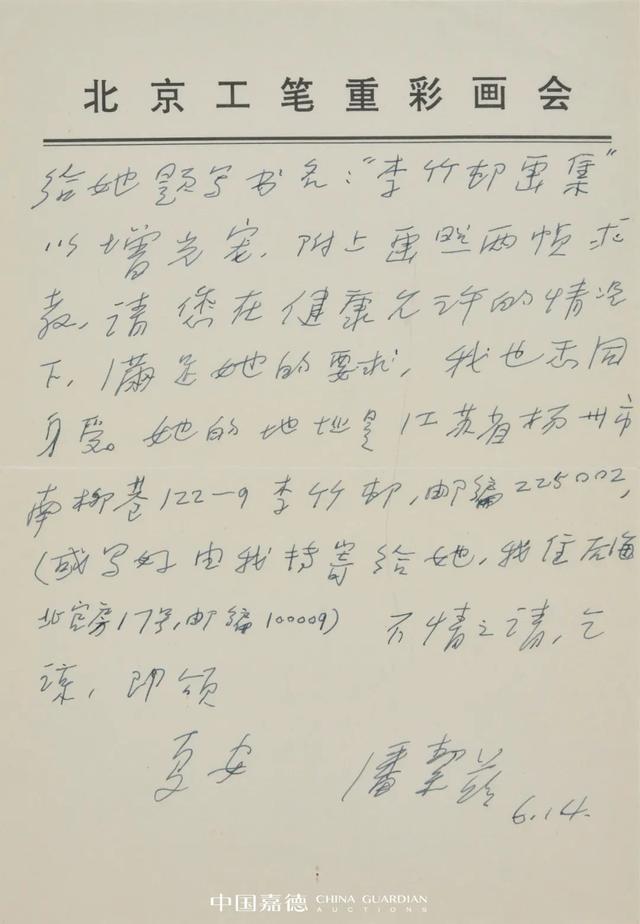 北京工笔重彩画会
给她题写书名：“李竹邨画集”
以增光宠，附上画照两帧求
教，请您在健康允许的情况
下，满足她的要求，我也感同
身受。她的地址是江苏省扬州市
南柳巷122—9李竹邨，邮编225002，
（或写好由我转寄给她，我住后海
北官房17号，邮编100009） 不情之请，乞
谅，即颂
夏安 潘絜兹
6.14.
中国嘉德 CHINA GUARDIAN
AUCTIONS